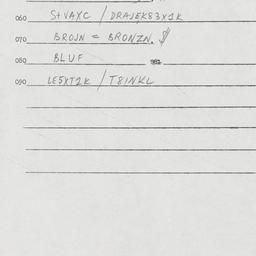 060 StVAXC / DRAJEK83X1K
070 BROJN = BRONZN.
080 BLUF
090 LE5XT2K / T8INKL